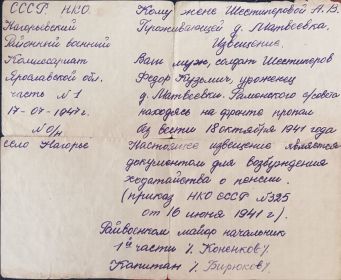 СССР НКО
Нагорьевский
Районный военный
Комиссариат
Ярославской обл.
часть №1
17-07-1947г.
№ 0/н
село Нагорье
Кому жене Шестиперовой А.В.
Проживающей д. Матвеевка.
Извещение
Ваш муж, солдат Шестиперов
Федор Кузьмич, уроженец
д. Матвеевки. Фалюнского с/совета
находясь на фронте пропал
без вести 18 октября 1941 года
Настоящее извещение является
документом для возбуждения
ходатайства о пенсии.
(приказ НКО СССР №325
от 16 июня 1941г.).
Райвоенком майор начальник
1й части /. Коненков /.
Капитан /. Бирюков /.